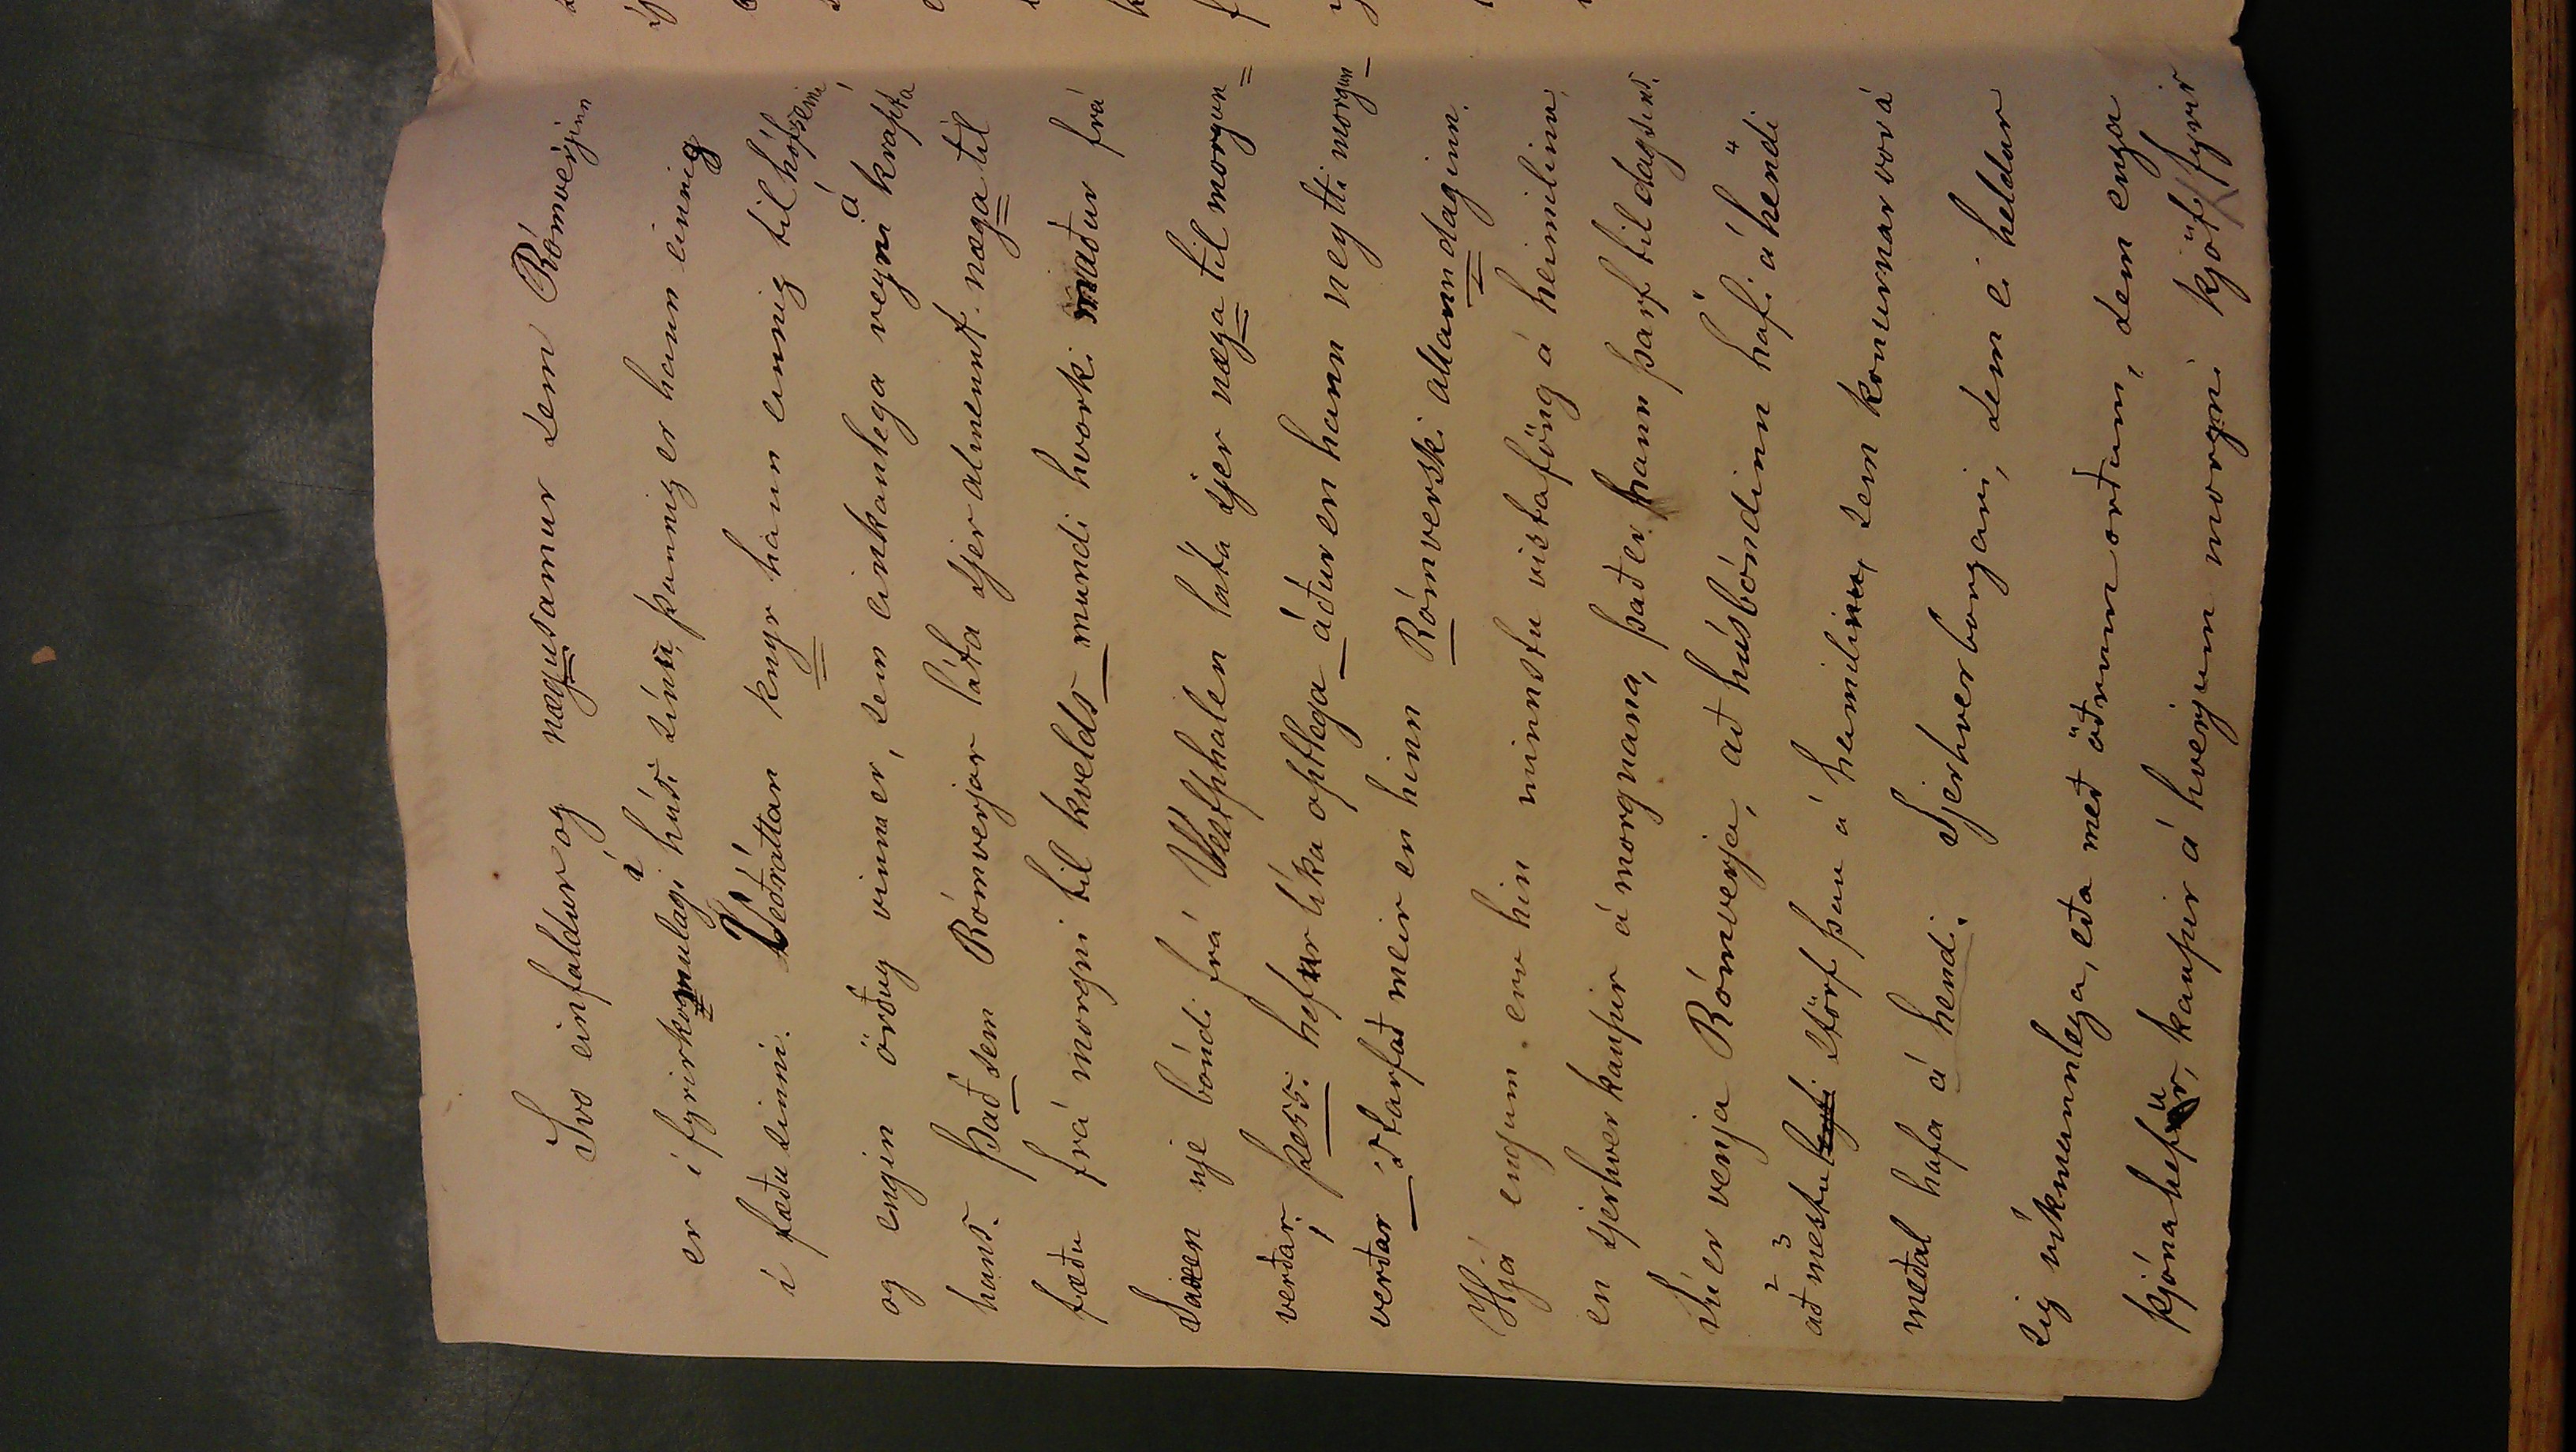 Svo einfaldur og nægusamur sem Rómverjinn
er í fyrirkomulagi á húsi sínu, þannig er hann einnig
í fæðu sinni. Veðráttan knyr hann einnig til hófsemi,
og engin örðug vinna er, sem einkanlega reyni á krapta
hans. Það sem Rómverjar láta sjer almennt nægja til
fæðu frá morgni til kvelds mundi hvorki maður frá
Saxen nje bóndi frá Vestphalen láta sjer nægja til morgun=
verðar; þess: hefur líka optlega áður en hann neytti morgun
verðar starfað meir en hinn Rómverski allann daginn.
Hjá engum eru hin minnstu vistaföng á heimilinu,
en sjerhver kaupir á morgnana, það er hann þarf til dagsins.
Sú er venja Rómverja, að húsbóndinn hafi á hendi 4
2 3 að mestu leyti störf þau á heimilinu, sem konurnar vor á
meðal hafa á hendi. Sjerhver borgari, sem ei heldur
sig ríkmannlega, eða með öðrum orðum, sem enga
þjóna hefur, kaupir á hverjum morgni kjöt fyrir